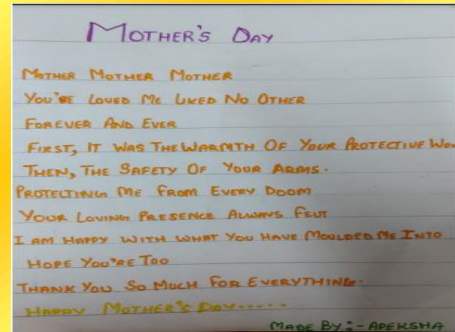 MOTHER'S DAY
MOTHER MOTHER MOTHER
YOU'RE LOVED ME LIKED NO OTHER
FOREVER AND EVER
FIRST, IT WAS THE WARMTH OF YOUR PROTECTIVE
THEN, THE SAFETY OF YOUR ARMS.
PROTECTING ME FROM EVERY DOOM
YOUR LOVING PRESENCE ALWAYS FELT
I AM HAPPY WITH WHAT YOU HAVE MOULDED ME INTO
HOPE YOU'RE TOO
THANK YOU SO MUCH FOR EVERYTHING.
HAPPY MOTHER'S DAY.....
MADE BY :- APEKSHA